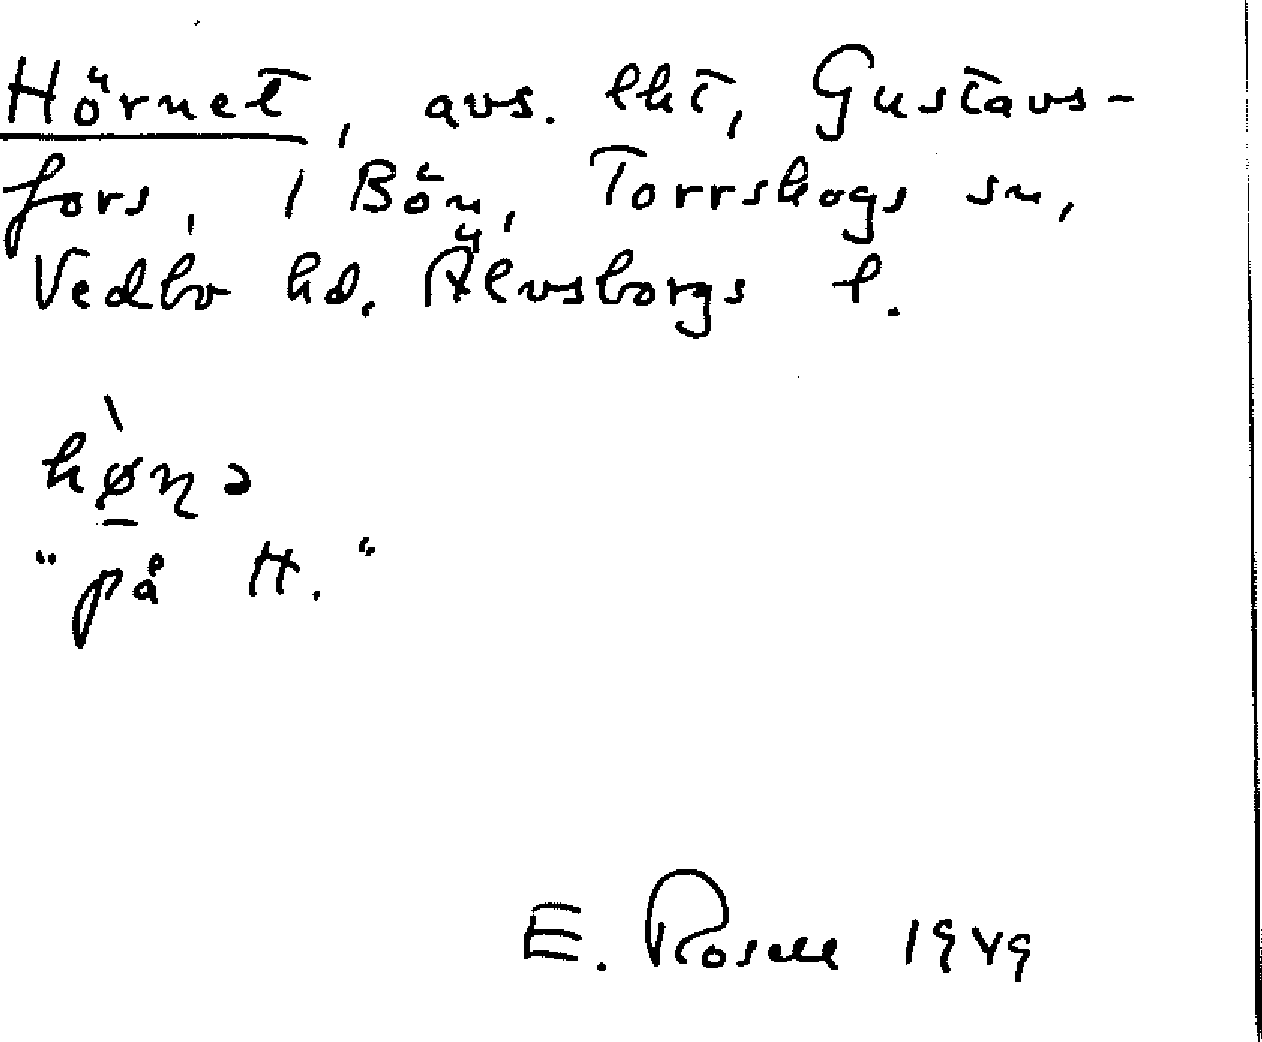 Hörnet, avs. lht, Gustavs-
fors, i Bön, Torrskogs sn,
Vedbo hd. Älvsborgs l.
hø̀ṇə
"på H."
E. Rosell 1949